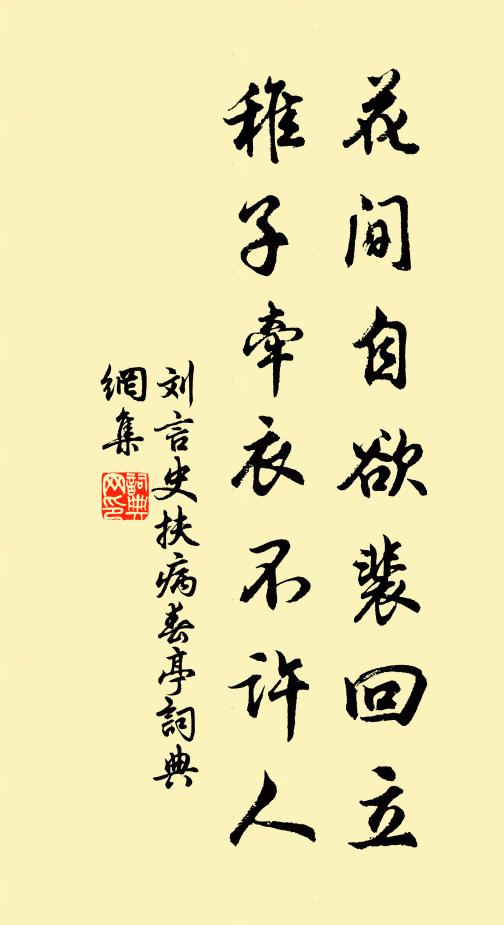 花间自欲裴回立
稚子牵衣不许人
刘言史扶病春亭词典
网集
词典网印